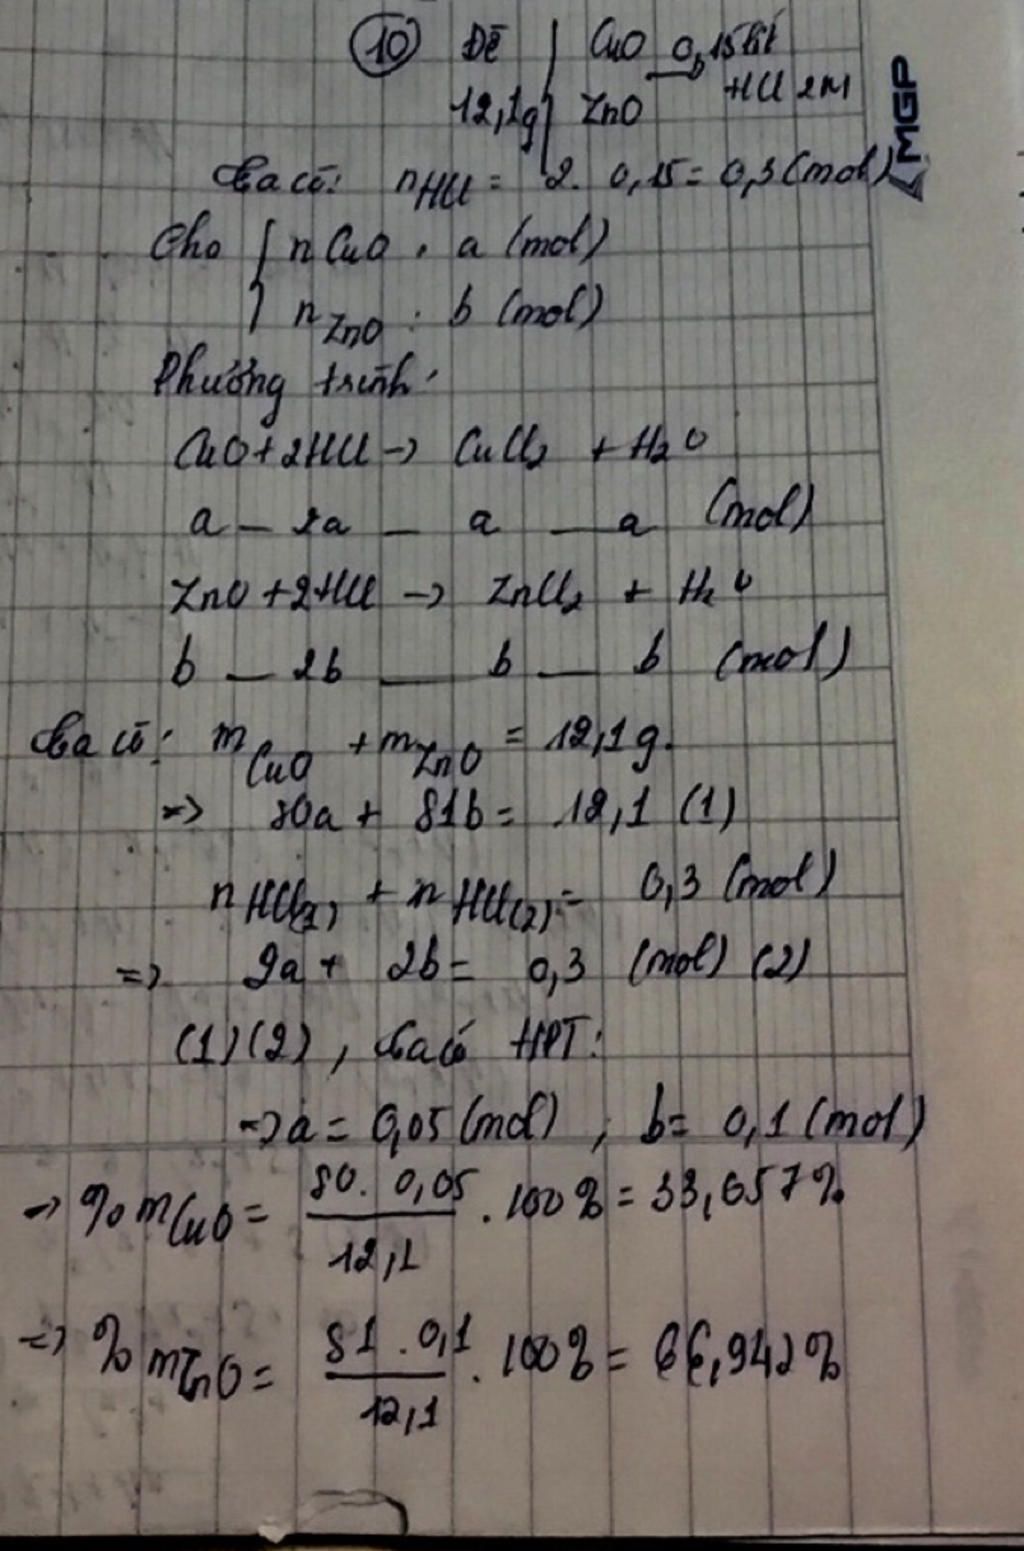 10 Đề | CuO 0,15 lít
12,1g | ZnO → HCl 2M
MGP
Ta có: nHCl = 2. 0,15 = 0,3 (mol)
Cho { nCuO : a (mol)
nZnO : b (mol)
Phương trình:
CuO + 2HCl -> CuCl2 + H2O
a — 2a — a — a (mol)
ZnO + 2HCl -> ZnCl2 + H2O
b — 2b — b — b (mol)
Ta có: mCuO + mZnO = 12,1g.
=> 80a + 81b = 12,1 (1)
nHCl(1) + nHCl(2) = 0,3 (mol)
=> 2a + 2b = 0,3 (mol) (2)
(1)(2), Ta có HPT:
=> a = 0,05 (mol) ; b = 0,1 (mol)
-> %mCuO = 80. 0,05 / 12,1 . 100% = 33,057%
=> %mZnO = 81 . 0,1 / 12,1 . 100% = 66,942%